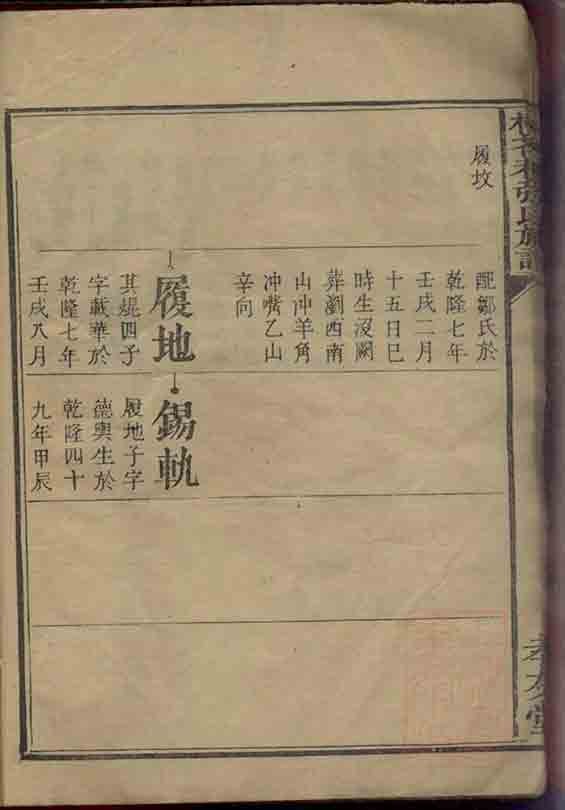 張氏族譜
孝友堂
履坟
配鄒氏於
乾隆七年
壬戌二月
十五日巳
時生沒闕
葬瀏西南
山冲羊角
冲嘴乙山
辛向
履地
其焜四子
字載華於
乾隆七年
壬戌八月
錫軌
履地子字
德輿生於
乾隆四十
九年甲辰